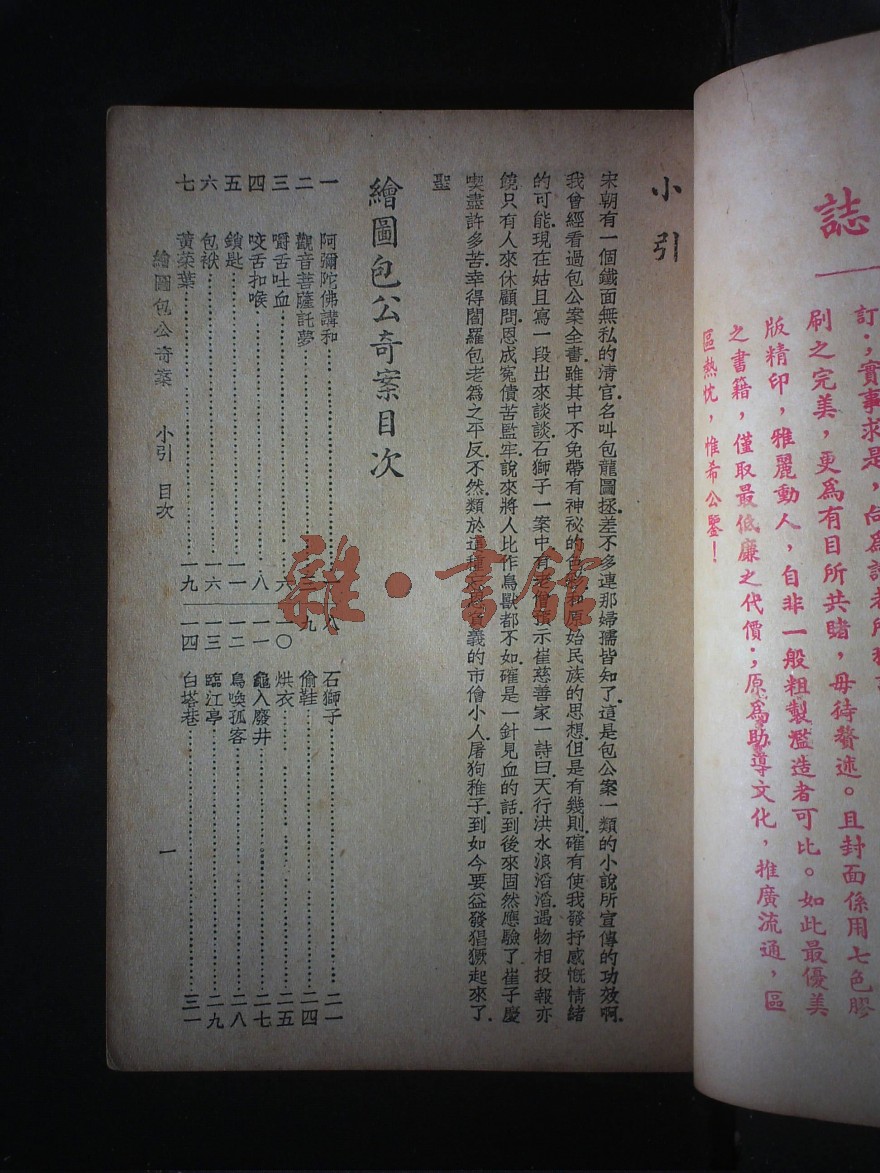 誌
訂；實事求是，尚爲讀者所
刷之完美，更爲有目所共賭，毋待贅述。且封面係用七色膠
版精印，雅麗動人，自非一般粗製濫造者可比。如此最優美
之書籍，僅取最低廉之代價；原爲助導文化，推廣流通，區
區熱忱，惟希公鑒！
小引
宋朝有一個鐵面無私的清官名叫包龍圖拯差不多連那婦孺皆知了這是包公案一類的小說所宣傳的功效啊
我曾經看過包公案全書雖其中不免帶有神祕的色彩和原始民族的思想但是有幾則確有使我發抒感慨情緒
的可能現在姑且寫一段出來談談石獅子一案中有老僧示崔慈善家一詩曰天行洪水浪滔滔遇物相投報亦
饒只有人來休顧問恩成冤債苦監牢說來將人比作鳥獸都不如確是一針見血的話到後來固然應驗了崔子慶
喫盡許多苦幸得閻羅包老爲之平反不然類於這種忘恩負義的市儈小人屠狗稚子到如今要益發猖獗起來了
聖
繪圖包公奇案目次
一 阿彌陀佛講和
二 觀音菩薩託夢
三 嚼舌吐血 六
四 咬舌扣喉 八
五 鎖匙 一一
六 包袱 一六
七 黃菜葉 一九
八 石獅子 二一
九 偷鞋 二四
一〇 烘衣 二五
一一 龜入廢井 二七
一二 鳥喚孤客 二八
一三 臨江亭 二九
一四 白塔巷 三一
繪圖包公奇案 小引 目次 一
雜·書館